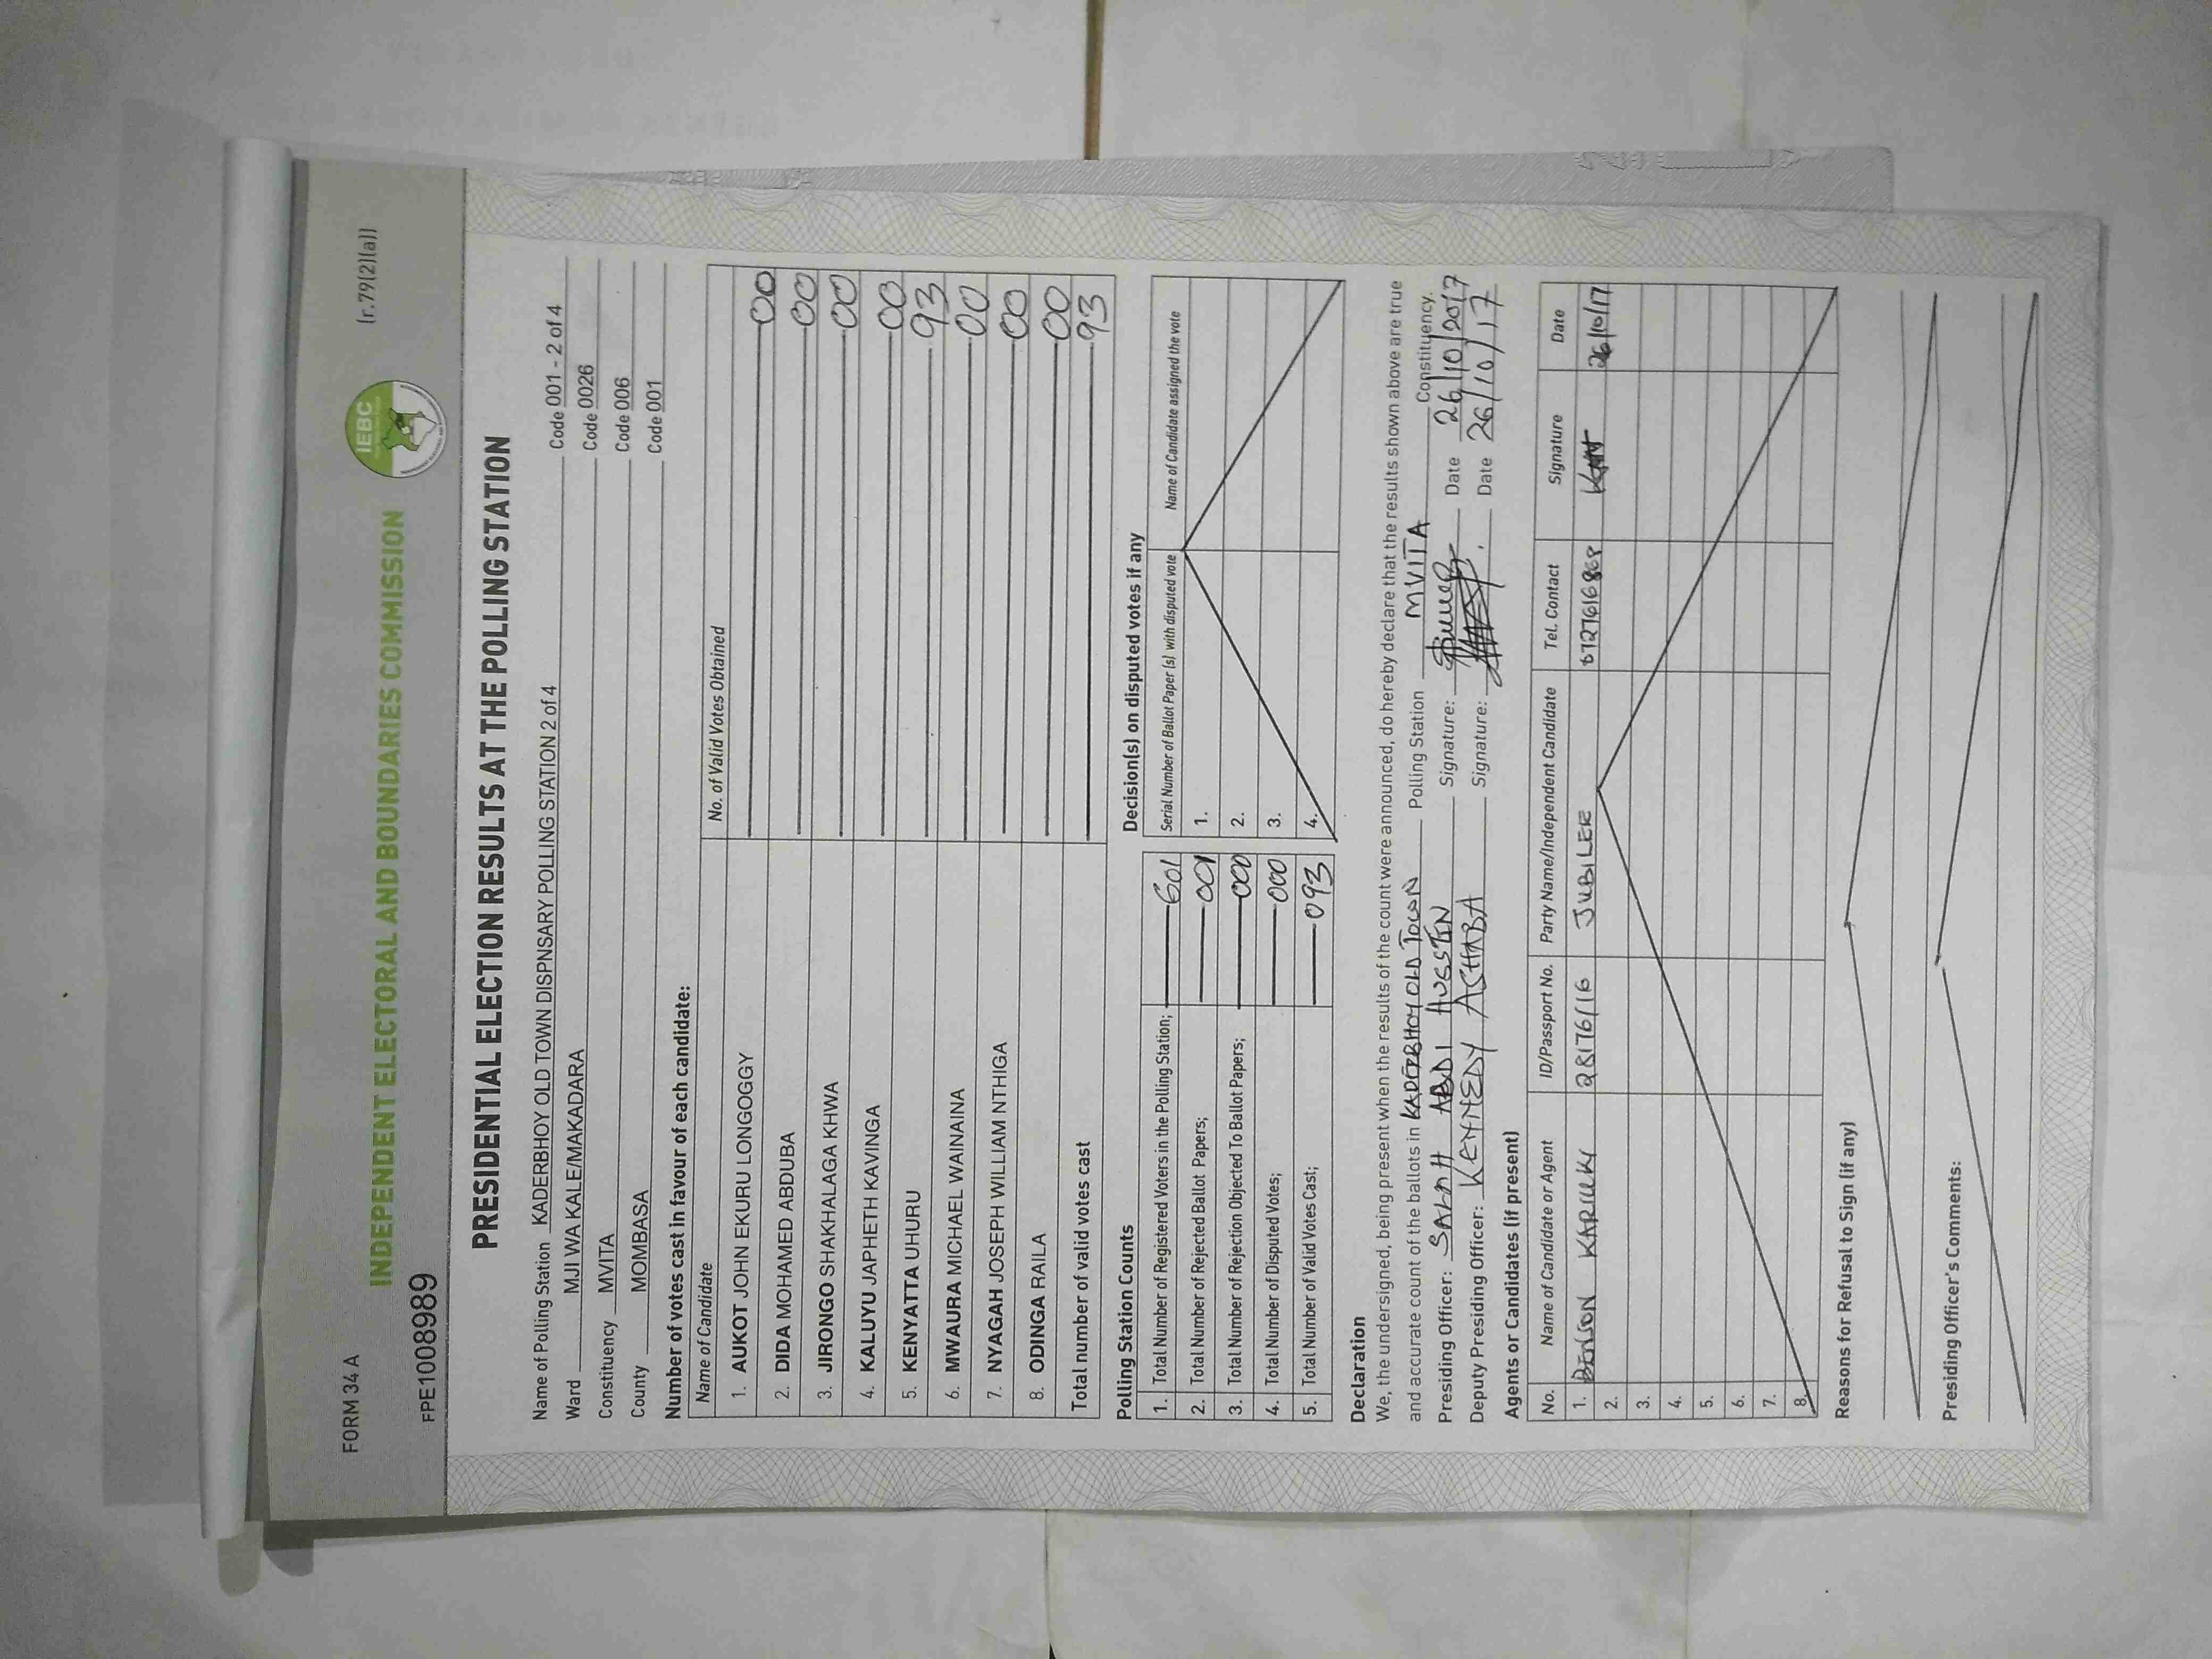 FORM 34 A
(r.79(2)(a))
INDEPENDENT ELECTORAL AND BOUNDARIES COMMISSION
IEBC
FPE1008989
PRESIDENTIAL ELECTION RESULTS AT THE POLLING STATION
Name of Polling Station KADERBHOY OLD TOWN DISPNSARY POLLING STATION 2 of 4 Code 001 - 2 of 4
Ward MJI WA KALE/MAKADARA Code 0026
Constituency MVITA Code 006
County MOMBASA Code 001
Number of votes cast in favour of each candidate:
Name of Candidate No. of Valid Votes Obtained
1. AUKOT JOHN EKURU LONGOGGY 00
2. DIDA MOHAMED ABDUBA 00
3. JIRONGO SHAKHALAGA KHWA 00
4. KALUYU JAPHETH KAVINGA 00
5. KENYATTA UHURU 93
6. MWAURA MICHAEL WAINAINA 00
7. NYAGAH JOSEPH WILLIAM NTHIGA 00
8. ODINGA RAILA 00
Total number of valid votes cast 93
Polling Station Counts
1. Total Number of Registered Voters in the Polling Station; 601
2. Total Number of Rejected Ballot Papers; 001
3. Total Number of Rejection Objected To Ballot Papers; 000
4. Total Number of Disputed Votes; 000
5. Total Number of Valid Votes Cast; 093
Decision(s) on disputed votes if any
Serial Number of Ballot Paper (s) with disputed vote Name of Candidate assigned the vote
1.
2.
3.
4.
Declaration
We, the undersigned, being present when the results of the count were announced, do hereby declare that the results shown above are true
and accurate count of the ballots in KADERBHOY OLD TOWN Polling Station MVITA Constituency.
Presiding Officer: SALAH ABDI HUSSEIN Signature: Date 26/10/2017
Deputy Presiding Officer: KENNEDY ACHABA Signature: Date 26/10/17
Agents or Candidates (if present)
No. Name of Candidate or Agent ID/Passport No. Party Name/Independent Candidate Tel. Contact Signature Date
1. BENSON KARIUKI 28176116 JUBILEE 0727616868 26/10/17
2.
3.
4.
5.
6.
7.
8.
Reasons for Refusal to Sign (if any)
Presiding Officer's Comments: